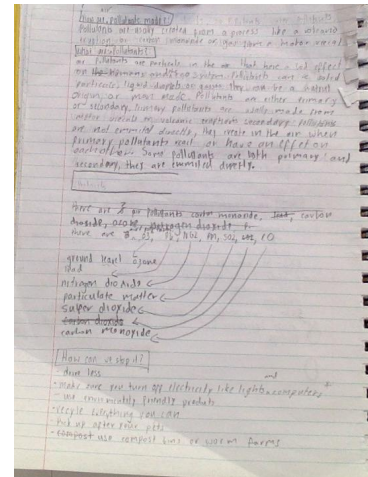 air
How are pollutants made?
Pollutants are usually created from a process like a volcano
eruption or carbon monoxide or gas from a motor vehicle
What are pollutants?
air pollutants are particals in the air that have a bad effect
on the humans and/or system. Pollutants can be a solid
particals, liquid droplets or gases. they can be a natural
origin, or man made. Pollutants are either primary
or secondary. Primary pollutants are usually made from
motor vehicle or volcanic eruptions. secondary pollutants
are not emmited directly, they create in the air when
primary pollutants react or have an effect on
each other. Some pollutants are both primary and
secondary, they are emmited directly.
there are air pollutants carbon monoxide, carbon
dioxide, ozone, nitrogen dioxide
there are NO2, PM, SO2, CO
ground level ozone
lead
nitrogen dioxide
particulate matter
sulper dioxide
carbon dioxide
carbon monoxide
How can we stop it?
- drive less
- make sure you turn off electricity like lights and computers
- use enviromently friendly products
- recycle everything you can
- Pick up after your pets
- compost use compost bins or worm farms